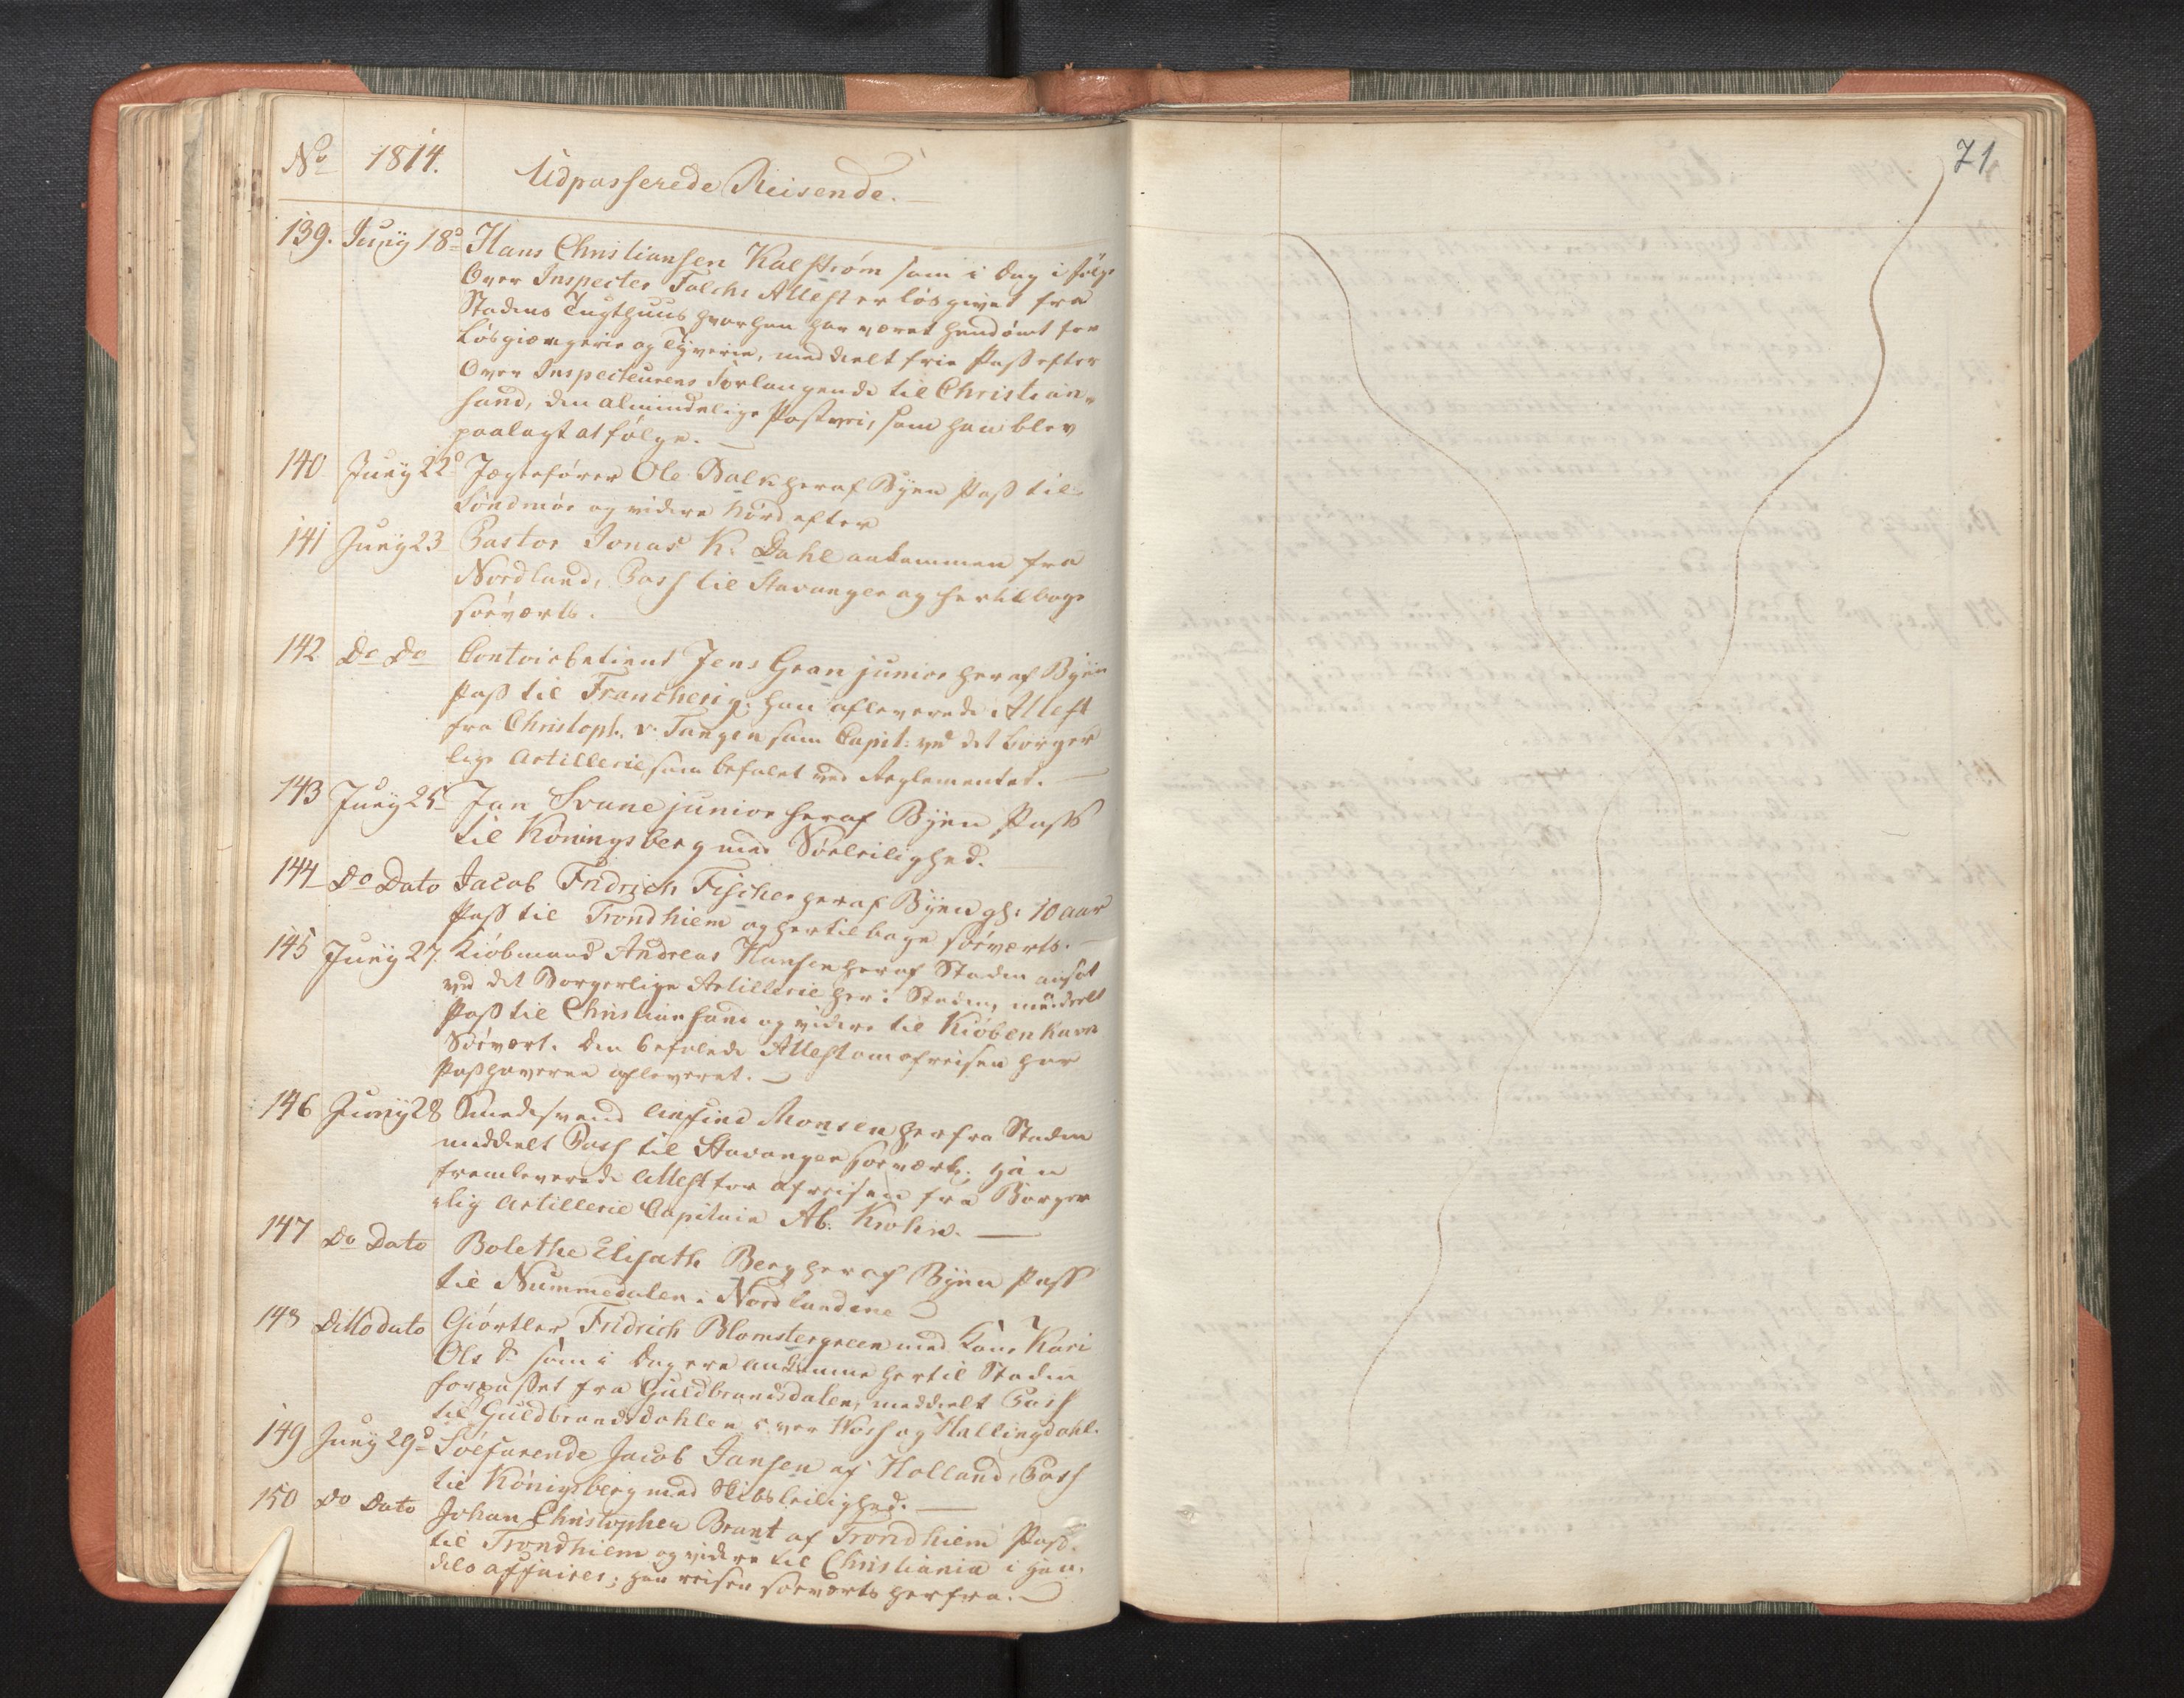 No 1814. Udpasserede Reisende.
71
139. Juny 18d Hans Christiansen Kalstrøm som i Dag i følge
Over Inspecter Falchs Attest er løsgivet fra
Stadens Tugthuus hvorhen har været hendømt for
Løsgiængerie og Tyverie, meddeelt frie Pass efter
Over Inspecteurens Forlangende til Christian„
sand, den almindelige Postvei, som han blev
paalagt at følge.
140 Juny 22d Jægtefører Ole Balk heraf Byen Pass til
Søndmør og videre Nord efter
141 Juny 23 Pastor Jonas K. Dahl ankommen fra
Nordland, Pass til Stavanger og hertilbage
søeværts.
142 Do Do Contoirbetient Jens Gran junior heraf Byen
Pass til Franckerig. han afleverede Attest
fra Christoph. v. Tangen som Capit: ved det borger
lige Artillerie, som befalet ved Reglementet.
143 Juny 25 Jan Svane junior heraf Byen Pass
til Köningsberg med Søeleilighed.
144 Do Dato Jacob Fridrich Fischer heraf Byen gl: 10 aar
Pass til Trondhiem og hertilbage søeværts.
145 Juny 27. Kiøbmand Andreas Hansen heraf Staden ansat
ved det Borgerlige Artillerie her i Staden, meddeelt
Pass til Christiansand og videre til Kiøbenhavn
Søevært. Den befalede Attest om afreisen har
Passhaveren afleveret.
146 Juny 28 Smedesvend Anfind Monsen herfra Staden
meddeelt Pass til Stavanger søeværts. Han
fremleverede Attest for afreisen fra Borger
„lig Artillerie Capitain Ab. Krohn.
147 Do Dato Bolethe Elisath Berg heraf Byen Pass
til Nummedalen i Nordlandene
148 Ditto dato Giørtler Fridrich Blomstergreen med Kone Kari
Ols Dr som i Dag ere ankomme hertil Staden
forpasset fra Guldbrandsdalen, meddeelt Pass
til Guldbrandsdahlen over Woss og Hallingdahl.
149 Juny 29d Søefarende Jacob Jansen af Holland, Pass
til Königsberg med Skibsleilighed.
150 Do Dato Johan Christopher Brant af Trondhiem Pass.
til Trondhiem og videre til Christiania i Han„
dels affairer; han reisen søeværts herfra.